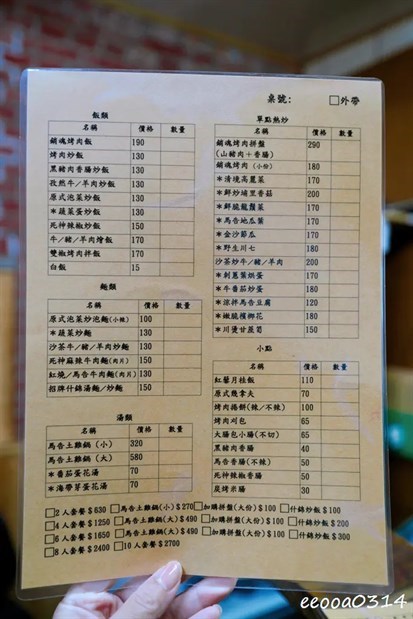 桌號: □外帶
飯類
名稱 價格 數量
銷魂烤肉飯 190
烤肉炒飯 130
黑豬肉香腸炒飯 130
孜然牛/羊肉炒飯 130
原式泡菜炒飯 130
*蔬菜蛋炒飯 130
死神辣椒炒飯 150
牛/豬/羊肉燴飯 170
雙椒烤肉拌飯 170
白飯 15
麵類
名稱 價格 數量
原式泡菜炒泡麵(小辣) 100
*蔬菜炒麵 130
沙茶牛/豬/羊肉炒麵 130
死神麻辣牛肉麵(肉片) 150
紅燒/馬告牛肉麵(肉片) 130
招牌什錦湯麵/炒麵 150
湯類
名稱 價格 數量
馬告土雞鍋(小) 320
馬告土雞鍋(大) 580
*番茄蛋花湯 70
*海帶芽蛋花湯 70
單點熱炒
名稱 價格 數量
銷魂烤肉拼盤 290
(山豬肉+香腸)
銷魂烤肉(小份) 180
*清境高麗菜 170
*鮮炒埔里香菇 200
*鮮脆龍鬚菜 170
*馬告地瓜葉 170
*金沙節瓜 170
*野生川七 180
沙茶炒牛/豬/羊肉 200
*刺蔥葉烘蛋 170
*牛番茄炒蛋 180
*涼拌馬告豆腐 120
*嫩脆檳榔花 180
*川燙甘蔗筍 150
小點
名稱 價格 數量
紅馨月桂飯 110
原式幾拿夫 70
烤肉捲餅(辣/不辣) 100
烤肉刈包 65
大腸包小腸(不切) 65
黑豬肉香腸 40
馬告香腸(不辣) 50
死神辣椒香腸 50
炭烤米腸 30
□2人套餐$630 □馬告土雞鍋(小)$270 □加購拼盤(大份)$100 □什錦炒飯$100
□4人套餐$1250 □馬告土雞鍋(大)$490 □加購拼盤(大份)$100 □什錦炒飯$200
□6人套餐$1650 □馬告土雞鍋(大)$490 □加購拼盤(大份)$100 □什錦炒飯$300
□8人套餐$2400 □10人套餐$2700
eeooa0314